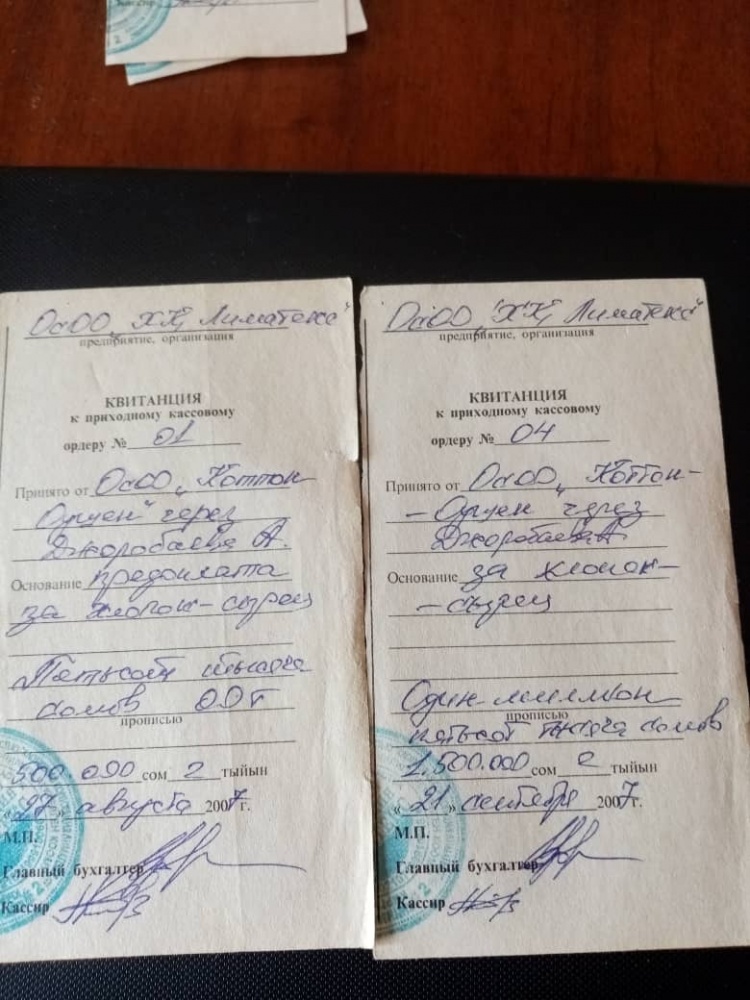 Кассир
ОсОО „ХК Лиматекс"
предприятие, организация
КВИТАНЦИЯ
к приходному кассовому
ордеру № 01
Принято от ОсОО „Коттон
Ориен" через
Джоробаева А.
Основание предоплата
за хлопок-сырец
Пятьсот тысяча
сомов 00т
прописью
500 000 сом 2 тыйын
„27" августа 2007г.
М.П.
Главный бухгалтер
Кассир
ОсОО "ХК Лиматекс"
предприятие, организация
КВИТАНЦИЯ
к приходному кассовому
ордеру № 04
Принято от ОсОО „Коттон-
-Ориен через
Джоробаева А.
Основание за хлопок-
-сырец
Один миллион
прописью
пятьсот тысяча сомов
1.500.000 сом 2 тыйын
„21" сентября 2007г.
М.П.
Главный бухгалтер
Кассир